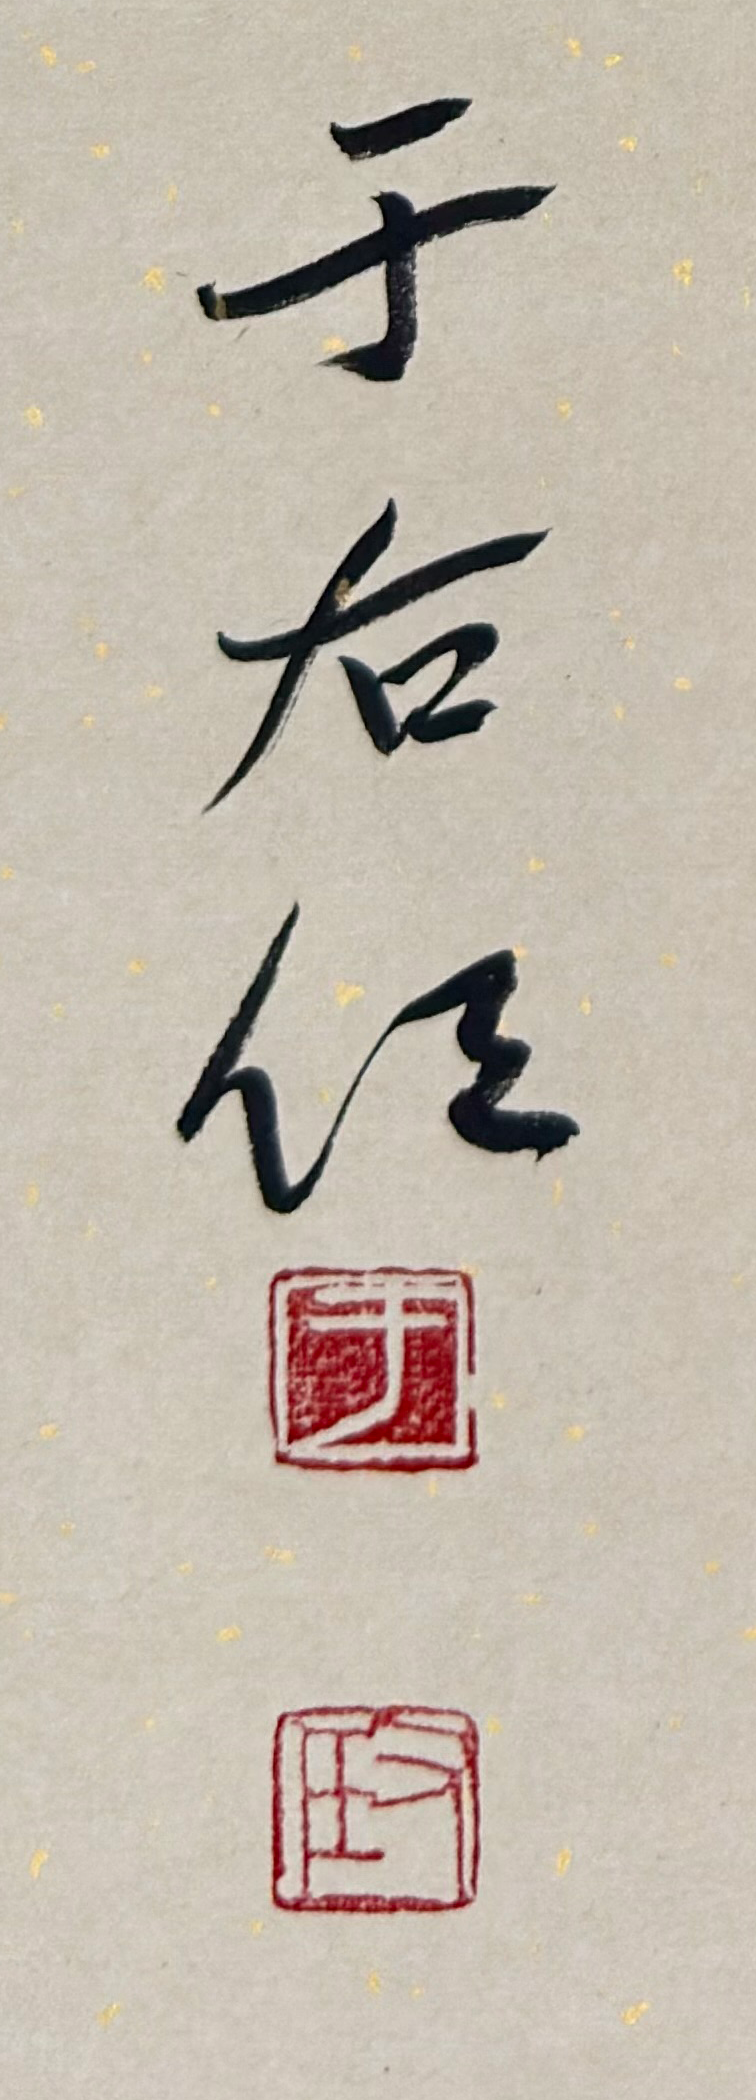 于右任
于
右任